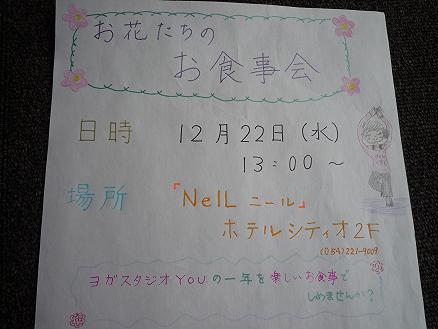 お花たちの
お食事会
日時 12月22日(水)
13:00～
場所 「NeIL ニール」
ホテルシティオ2F
(054)221-9009
ヨガスタジオYOUの一年を楽しいお食事で
しめませんか？